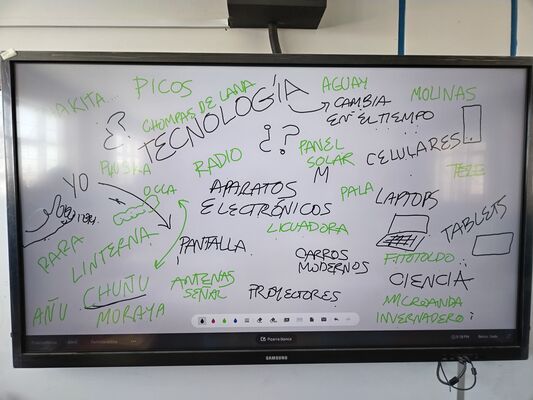 AKITA...
PICOS
CHOMPAS DE LANA
AGUAY
MOLINAS
¿?
TECNOLOGÍA
CAMBIA
EN EL TIEMPO
¿?
RADIO
PANEL
SOLAR
M
CELULARES
TELE
YO
OCCA
APARATOS
ELECTRÓNICOS
PALA
LAPTOPS
TABLETS
PAPA
LINTERNA
LICUADORA
PANTALLA
CARROS
MODERNOS
FITOTOLDO
CHUÑU
ANTENAS
SEÑAL
PROYECTORES
CIENCIA
AÑU
MORAYA
MICROONDA
INVERNADERO
Pizarra blanca
SAMSUNG